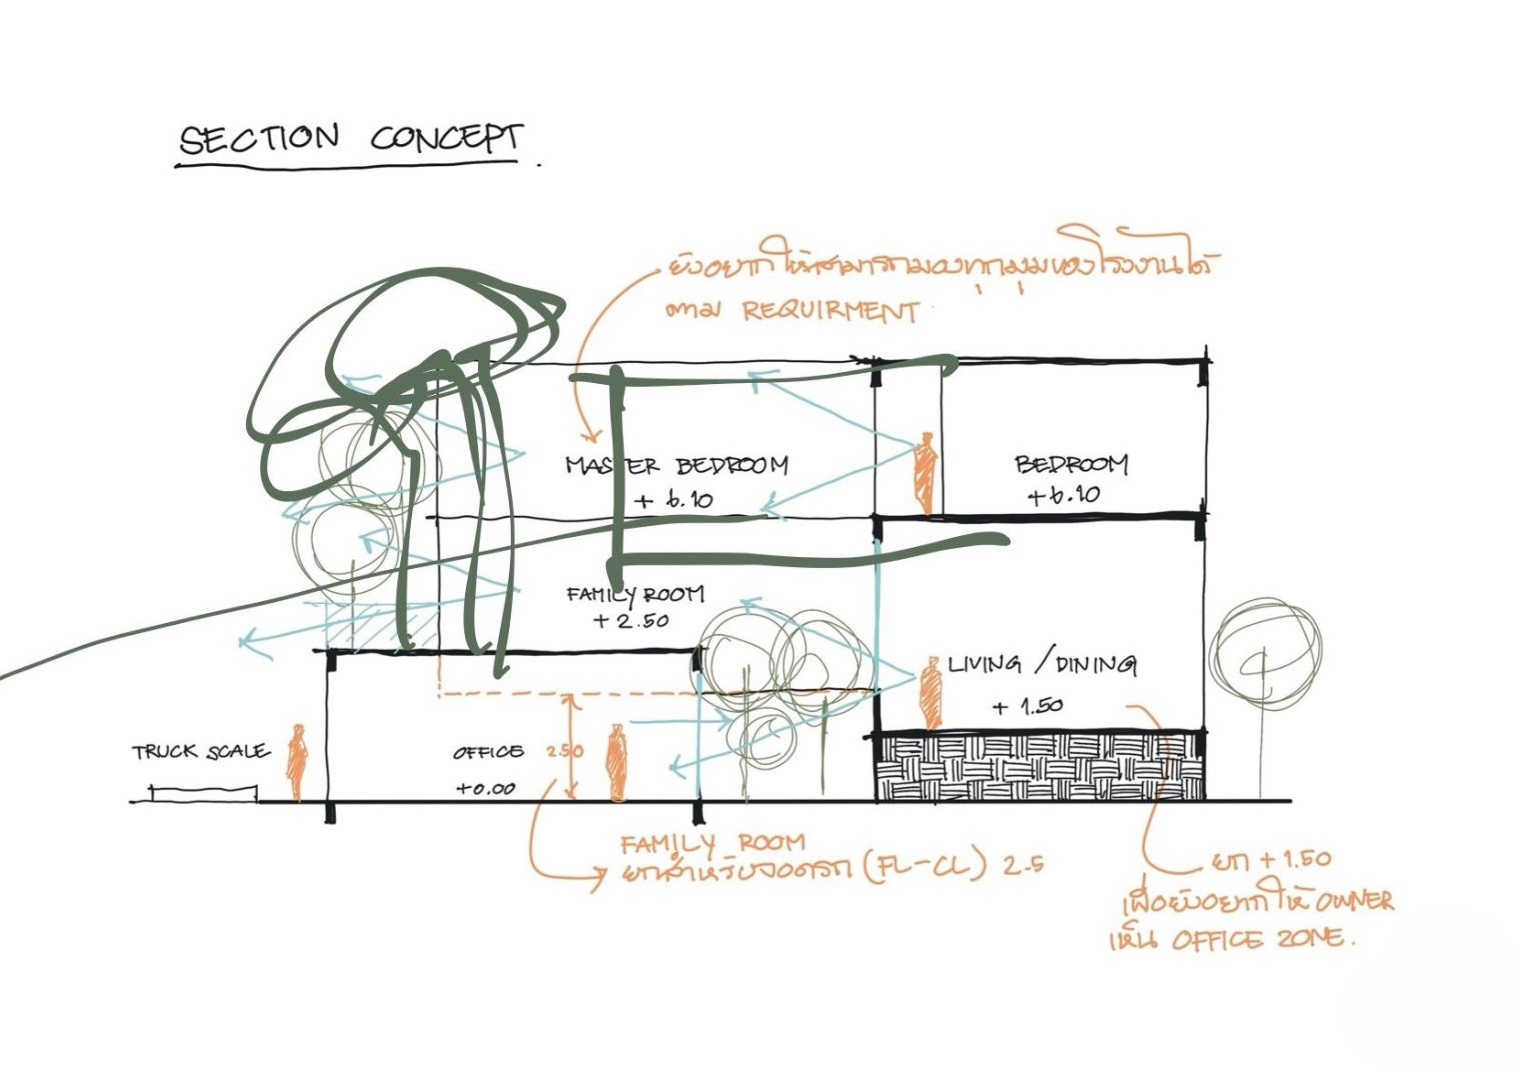 SECTION CONCEPT.
ยังอยากให้สามารถมองทุกมุมของโรงงานได้
ตาม REQUIRMENT
MASTER BEDROOM
+ 6.10
BEDROOM
+6.10
FAMILY ROOM
+ 2.50
LIVING / DINING
+ 1.50
TRUCK SCALE
OFFICE
2.50
+0.00
FAMILY ROOM
ยกสำหรับจอดรถ (FL-CL) 2.5
ยก +1.50
เพื่อยังอยากให้ OWNER
เห็น OFFICE ZONE.